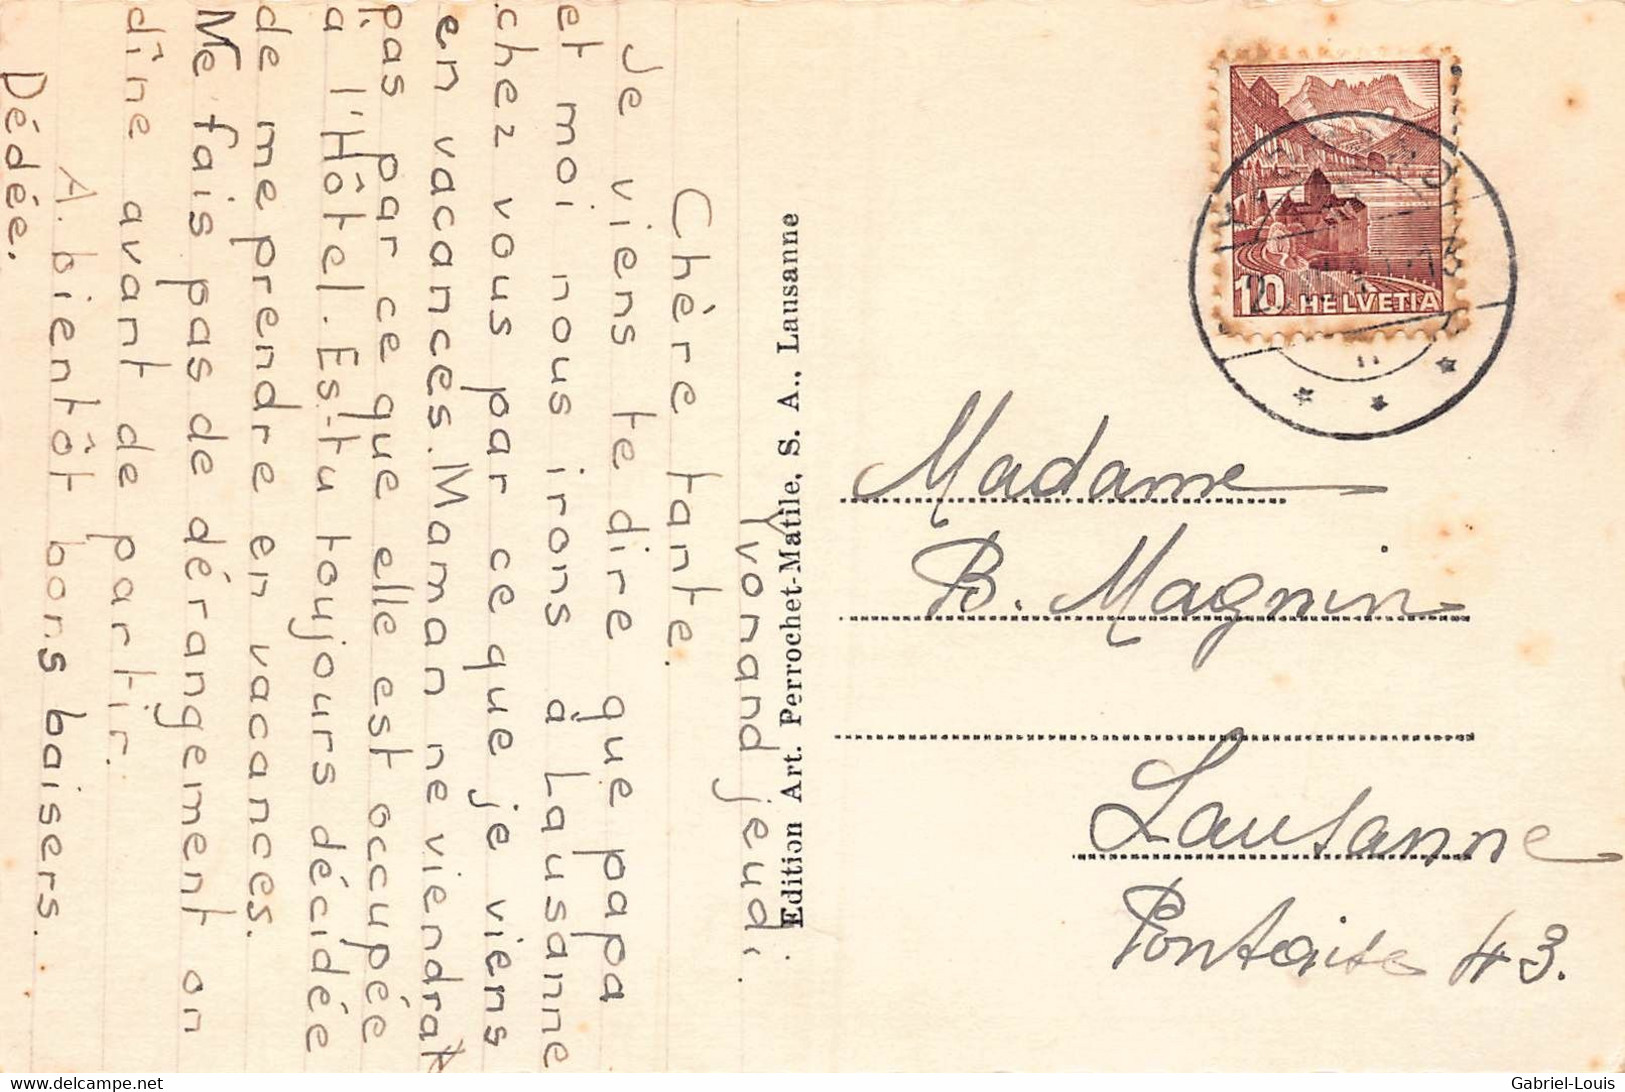 Yvonand jeudi.
Chère tante.
Je viens te dire que papa
et moi nous irons à Lausanne
chez vous par ce que je viens
en vacances. Maman ne viendrat
pas par ce que elle est occupée
a l'Hôtel. Es-tu toujours décidée
de me prendre en vacances.
Me fais pas de dérangement on
dîne avant de partir.
A. bientôt bons baisers.
Dédée.
Edition Art. Perrochet-Matile, S. A., Lausanne
10 HELVETIA
Madame
B. Magnin
Lausanne
Pontaise 43.
delcampe.net
Gabriel-Louis